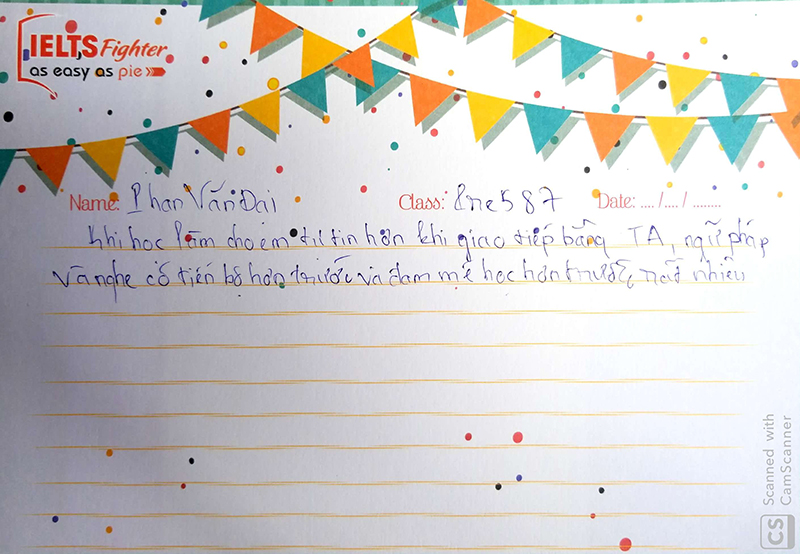 IELTS Fighter
as easy as pie
Name: Phan Văn Đại Class: 587 Date: .... /.... / ........
Khi học làm cho em tự tin hơn khi giao tiếp bằng TA, ngữ pháp
và nghe có tiến bộ hơn trước và đam mê học hơn trước rất nhiều
CS Scanned with
CamScanner